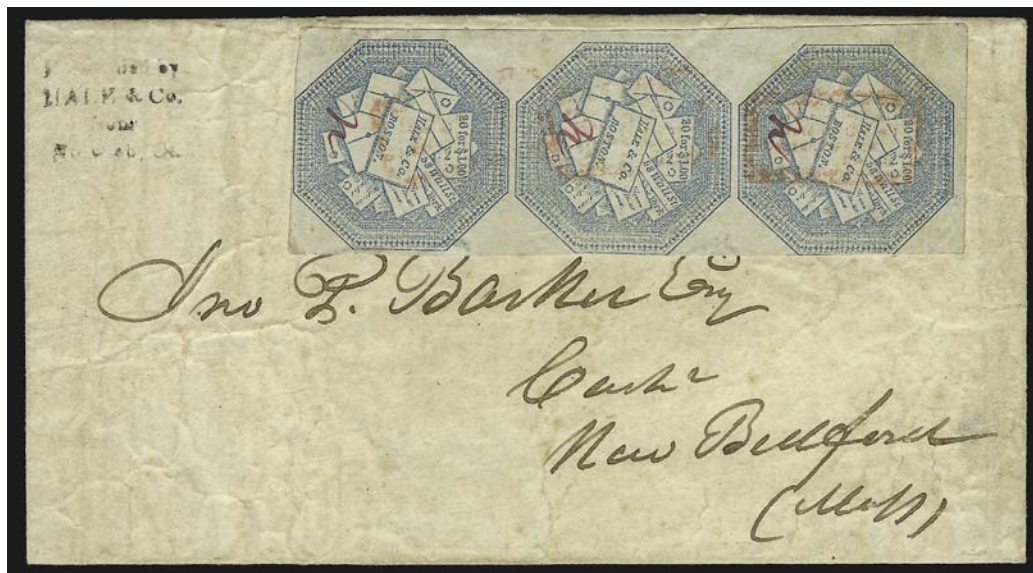 HALE & Co.
20 for $1.00
HALE & Co.
BOSTON.
20 for $1.00
HALE & Co.
BOSTON.
20 for $1.00
HALE & Co.
BOSTON.
Jno P. Barker Esq
Cashr
New Bedford
(Mass)